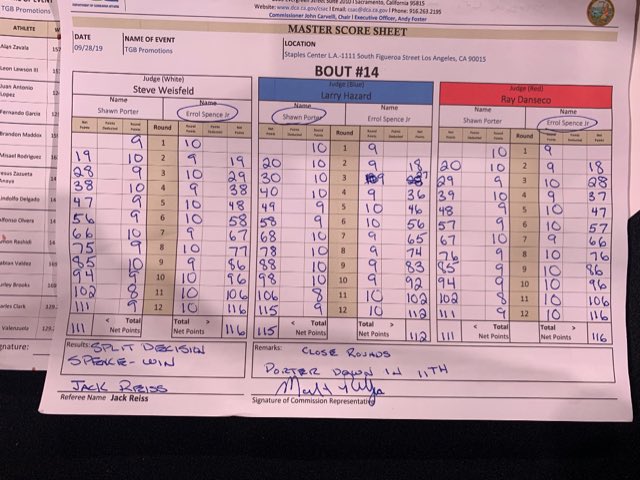 TGB PROMOTIONS
Suite 2010 | Sacramento, California 95815
Website: www.dca.ca.gov/csac | Email: csac@dca.ca.gov | Phone: 916.263.2195
Commissioner John Carvelli, Chair | Executive Officer, Andy Foster
MASTER SCORE SHEET
DATE
09/28/19
NAME OF EVENT
TGB Promotions
LOCATION
Staples Center L.A.-1111 South Figueroa Street Los Angeles, CA 90015
BOUT #14
Judge (White) Judge (Blue) Judge (Red)
Steve Weisfeld Larry Hazard Ray Danseco
Name Name Name Name Name Name
Shawn Porter Errol Spence Jr Shawn Porter Errol Spence Jr Shawn Porter Errol Spence Jr
Net Points Points Deducted Round Points Round Round Points Points Deducted Net Points Net Points Points Deducted Round Points Round Round Points Points Deducted Net Points Net Points Points Deducted Round Points Round Round Points Points Deducted Net Points
9 1 10 10 1 9 10 1 9
19 10 2 9 19 20 10 2 9 18 20 10 2 9 18
28 9 3 10 29 30 10 3 9 27 29 9 3 10 28
38 10 4 9 38 40 10 4 9 36 39 10 4 9 37
47 9 5 10 48 49 9 5 10 46 48 9 5 10 47
56 9 6 10 58 58 9 6 10 56 57 9 6 10 57
66 10 7 9 67 68 10 7 9 65 67 10 7 9 66
75 9 8 10 77 78 10 8 9 74 76 9 8 10 76
85 10 9 9 86 88 10 9 9 83 85 9 9 10 86
94 9 10 10 96 98 10 10 9 92 94 9 10 10 96
102 8 11 10 106 106 8 11 10 102 102 8 11 10 106
111 9 12 10 116 115 9 12 10 112 111 9 12 10 116
111 < Total Net Points Total > Net Points 116 115 < Total Net Points Total > Net Points 112 111 < Total Net Points Total > Net Points 116
Results: SPLIT DECISION
SPENCE - WIN
Remarks: CLOSE ROUNDS
PORTER DOWN IN 11TH
JACK REISS
Referee Name Jack Reiss
Signature of Commission Representative
ATHLETE
Alan Zavala
Leon Lawson III
Juan Antonio
Lopez
Fernando Garcia
Brandon Maddox
Misael Rodriguez
Jesus Zazueta
Anaya
Lindolfo Delgado
Alfonso Olvera
Amon Rashidi
Fabian Valdez
Burley Brooks
Charles Clark
Valenzuela
gnature: